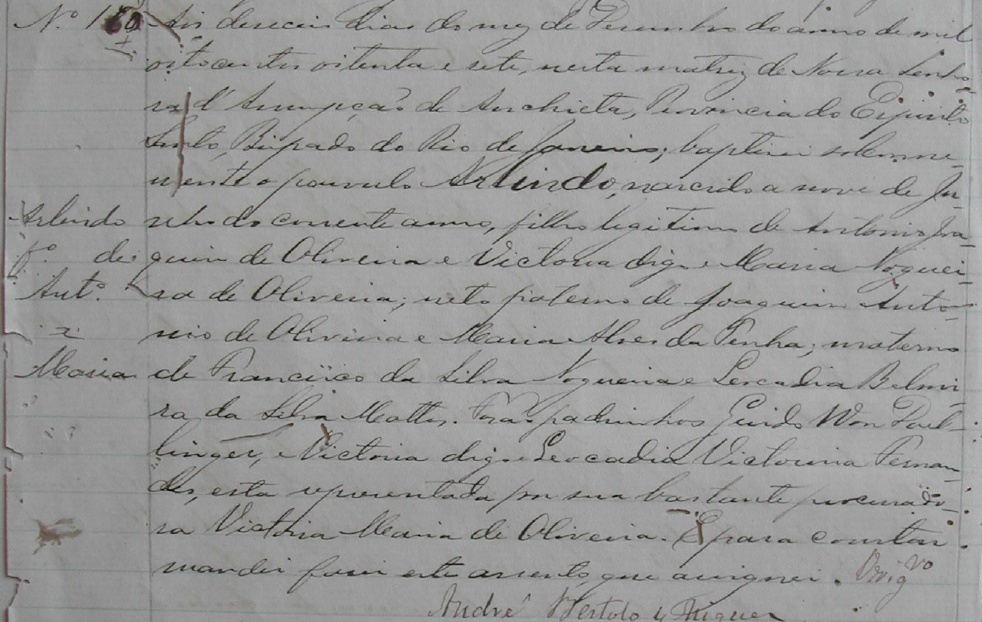 Nº 1
Aos deseceis dias do mez de Desembro do anno de mil
oitocentos oitenta e sete, nesta matriz de Nossa Senho-
ra d'Assumpção de Anchieta, Provincia do Espirito
Santo, Bispado do Rio de Janeiro; baptisei solemne-
mente o parvulo Arlindo, narcido a nove de Ju-
Arlindo
nho do corrente anno, filho legitimo de Antonio Joa-
fº de
quim de Oliveira e Victoria digo e Maria Noguei-
Antº
ra de Oliveira; neto paterno de Joaquim Anto-
e
nio de Oliveira e Maria Alves da Penha; materno
Maria
de Francisco da Silva Nogueira e Leocadia Belmi-
ra da Silva Mattos. Forão padrinhos Guido Won
linger, e Victoria digo e Leocadia Victorina Fernan-
des, esta representada por sua bastante procurado-
ra Victoria Maria de Oliveira. E para constar
mandei faser este assento, que assignei. O Vigrº
André